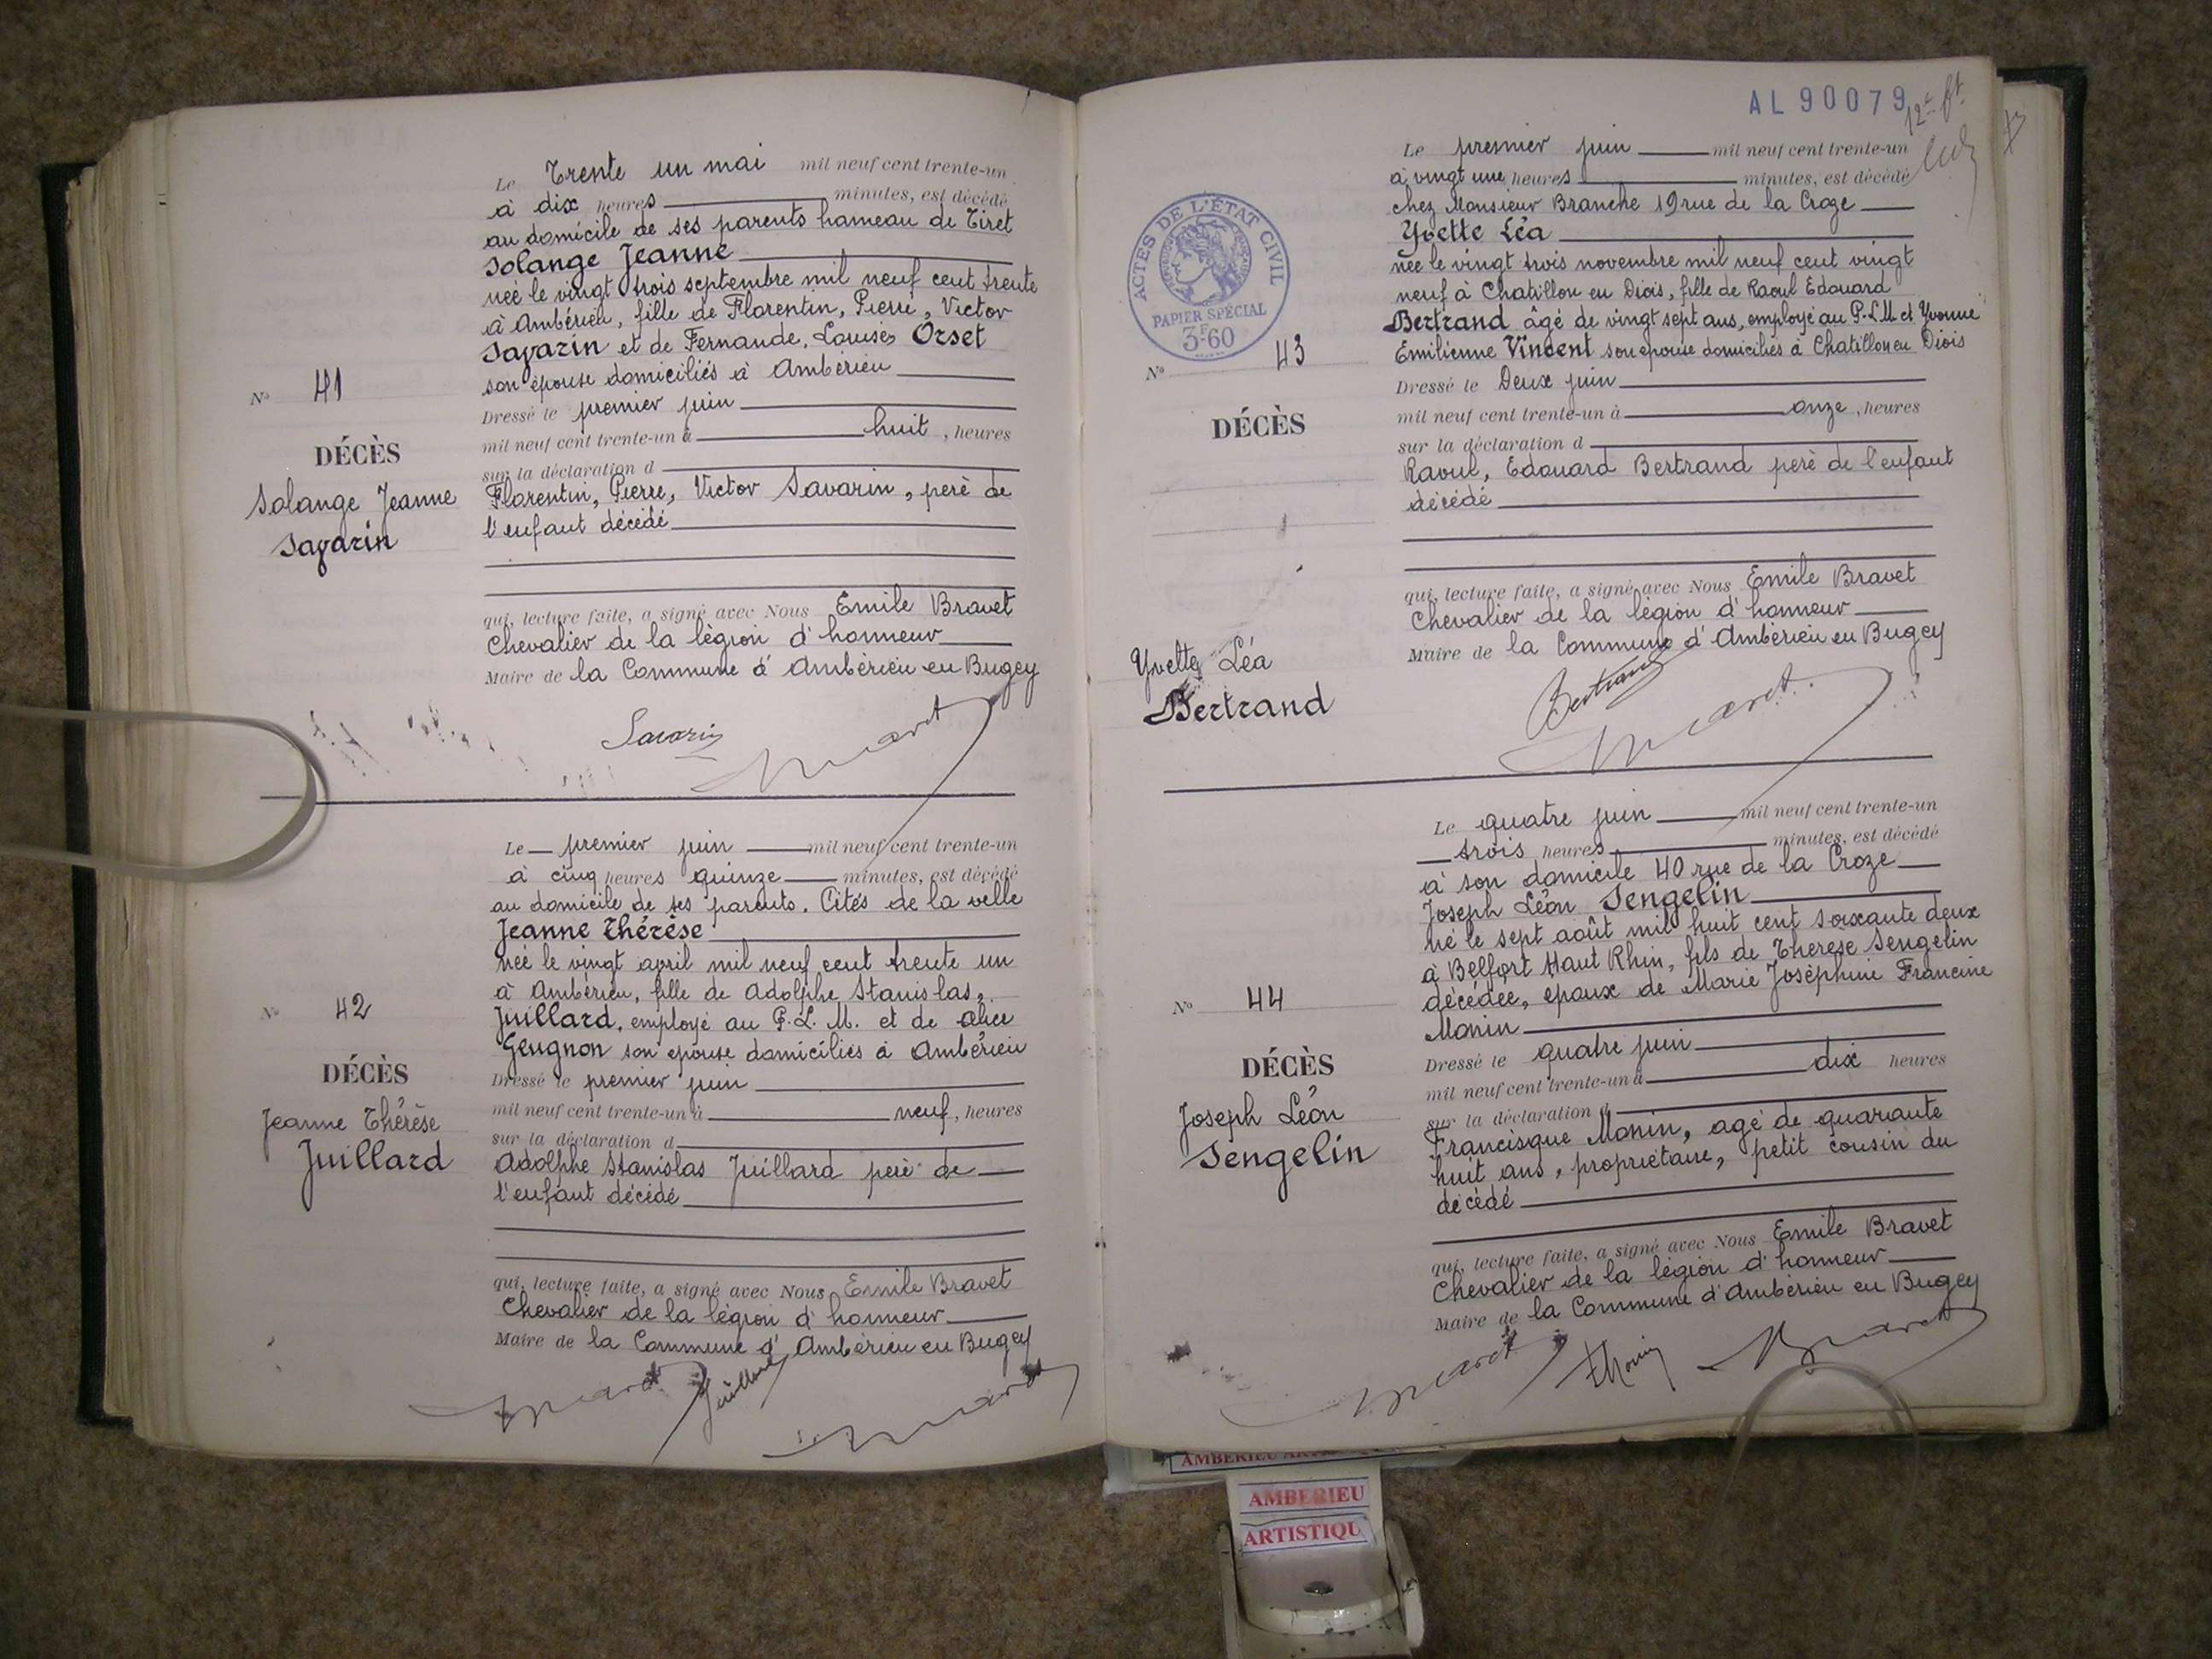 Le Trente un mai mil neuf cent trente-un
à dix heures minutes, est décédé
au domicile de ses parents hameau de Tiret
Solange Jeanne
née le vingt trois septembre mil neuf cent trente
à Ambérieu, fille de Florentin, Pierre, Victor
Savarin et de Fernande, Louise, Orset
son épouse domiciliés à Ambérieu
Dressé le premier juin
mil neuf cent trente-un à huit, heures
sur la déclaration d
Florentin, Pierre, Victor Savarin, père de
l'enfant décédé
qui, lecture faite, a signé avec Nous Emile Bravet
Chevalier de la légion d'honneur
Maire de la Commune d'Ambérieu en Bugey
Savarin
Bravet
No 41
DÉCÈS
Solange Jeanne
Savarin
Le premier juin mil neuf cent trente-un
à cinq heures quinze minutes, est décédé
au domicile de ses parents. Cités de la velle
Jeanne Thérèse
née le vingt april mil neuf cent trente un
à Ambérieu, fille de Adolphe Stanislas,
Juillard, employé au P.L.M. et de Alice
Geugnon son épouse domiciliés à Ambérieu
Dressé le premier juin
mil neuf cent trente-un à neuf, heures
sur la déclaration d
Adolphe Stanislas Juillard père de
l'enfant décédé
qui, lecture faite, a signé avec Nous Emile Bravet
Chevalier de la légion d'honneur
Maire de la Commune d'Ambérieu en Bugey
Bravet Juillard Bravet
No 42
DÉCÈS
Jeanne Thérèse
Juillard
AL 90079
Le premier juin mil neuf cent trente-un
à vingt une heures minutes, est décédé
chez Monsieur Branche 19 rue de la Croze
Yvette Léa
née le vingt trois novembre mil neuf cent vingt
neuf à Chatillon en Diois, fille de Raoul Edouard
Bertrand âgé de vingt sept ans, employé au P.L.M et Yvonne
Emilienne Vincent son épouse domiciliés à Chatillon en Diois
Dressé le Deux juin
mil neuf cent trente-un à onze, heures
sur la déclaration d
Raoul, Edouard Bertrand père de l'enfant
décédé
qui, lecture faite, a signé avec Nous Emile Bravet
Chevalier de la légion d'honneur
Maire de la Commune d'Ambérieu en Bugey
Bertrand
Bravet
ACTES DE L'ÉTAT CIVIL
PAPIER SPÉCIAL
3F60
No 43
DÉCÈS
Yvette Léa
Bertrand
Le quatre juin mil neuf cent trente-un
trois heures minutes, est décédé
à son domicile 40 rue de la Croze
Joseph Léon Sengelin
né le sept août mil huit cent soixante deux
à Belfort Haut Rhin, fils de Thérèse Sengelin
décédée, époux de Marie Joséphine Francine
Monin
Dressé le quatre juin
mil neuf cent trente-un à dix heures
sur la déclaration d
Francisque Monin, agé de quarante
huit ans, propriétaire, petit cousin du
décédé
qui, lecture faite, a signé avec Nous Emile Bravet
Chevalier de la légion d'honneur
Maire de la Commune d'Ambérieu en Bugey
Bravet Bravet
No 44
DÉCÈS
Joseph Léon
Sengelin
AMBERIEU
AMBERIEU
ARTISTIQU